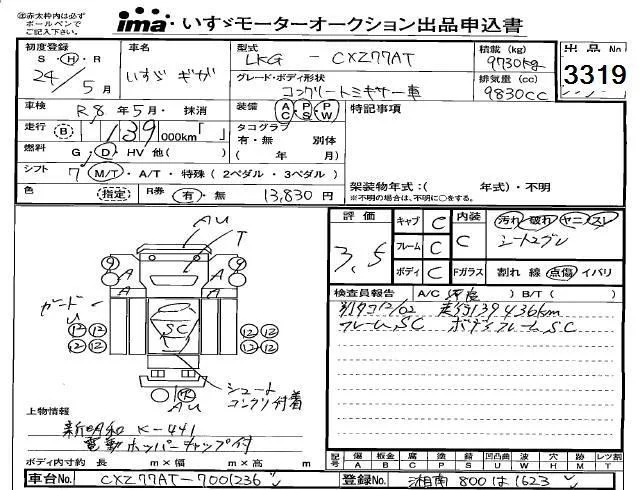 ㊟赤太枠内は必ず
ボールペンで
ご記入下さい。
ima いすゞモーターオークション出品申込書
初度登録
S・H・R
24/5月
車名
いすゞ ギガ
型式
LKG - CXZ77AT
グレード・ボディ形状
コンクリートミキサー車
積載 (kg)
9730kg
排気量 (cc)
9830cc
出品No
3319
車検 R8年5月・抹消
装備 AC・PS・PW
特記事項
走行 B 139 000km「 」
タコグラフ
有・無 別体
( 年 月)
燃料 G・D・HV 他( )
シフト 7 M/T・A/T・特殊(2ペダル・3ペダル)
色 (指定) R券 有・無 13,830円
架装物年式:( 年式)・不明
※不明の場合は、不明に○をする。
評価
3.5
キャブ C
フレーム C
ボディ C
内装
C
Fガラス
汚れ・破れ・ヤニ・スレ
シートスグレ
割れ 線 点傷 イバリ
検査員報告 A/C( )B/T( )
走行139436km
フレームSC ボディフレームSC
AU
T
9
9
A
A
A
A
ガード
U
SC
12 12
12 12
12 12
12 12
R
AU
シュート
コンクリ付着
上物情報
新明和 K-441
電動ホッパーチャップ付
ボディ内寸約 長 m×幅 m×高 m
記号 傷 板金 腐 塗 錆 凹凸曲 波 穴 跡 レツ割
A B C P S U W H M T
車台No. CXZ77AT-7001236
登録No. 湘南800は1623